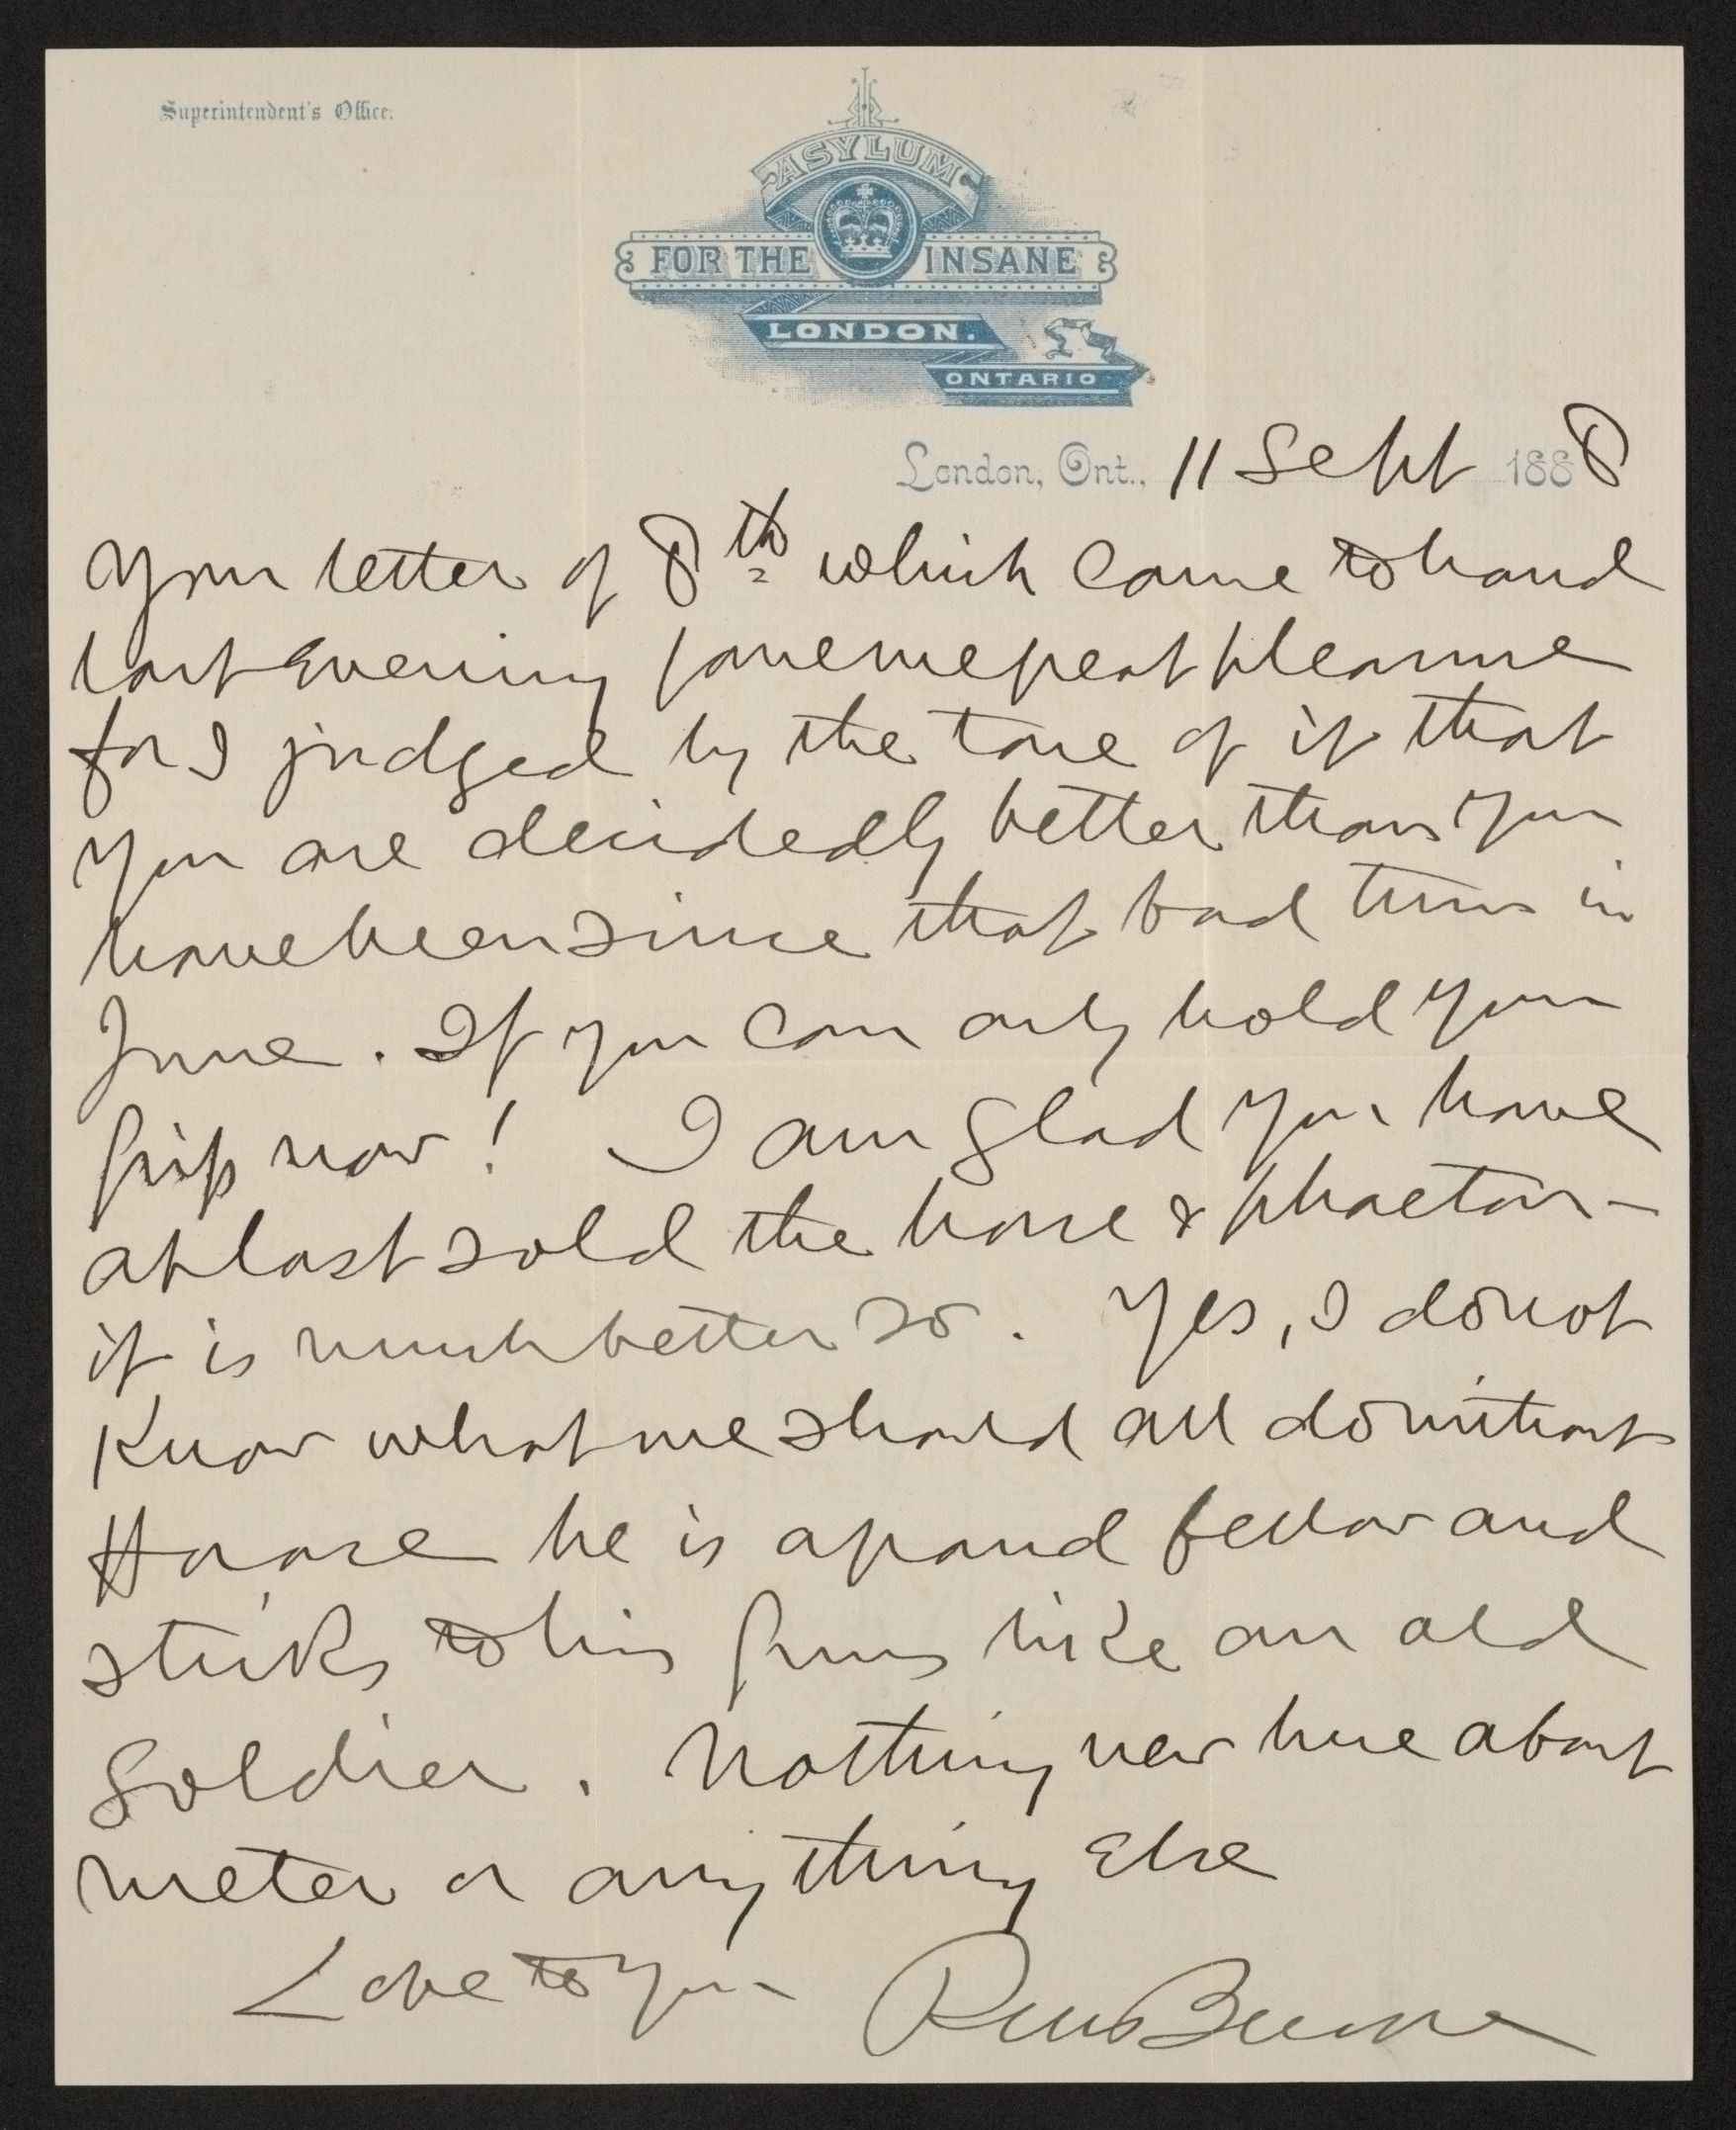 Superintendent's Office.
ASYLUM
FOR THE INSANE
LONDON.
ONTARIO
London, Ont., 11 Sept 1888
Your letter of 8th which came to hand
last evening gave me great pleasure
for I judged by the tone of it that
you are decidedly better than you
have been since that bad turn in
June. If you can only hold your
grip now! I am glad you have
at last sold the horse & phaeton —
it is much better so. Yes, I do not
know what we should all do without
Horace he is a grand fellow and
sticks to his guns like an old
soldier. Nothing new here about
meter or anything else
Love to you RM Bucke